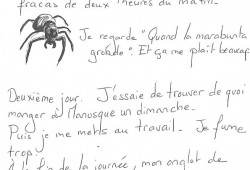 fracas de deux heures du matin.
Je regarde "Quand la marabunta
gronde". Et ça me plaît beaucoup
Deuxième jour. J'essaie de trouver de quoi
manger à Manosque un dimanche.
Puis je me mets au travail. Je fume
trop.
À la fin de la journée, mon onglet de